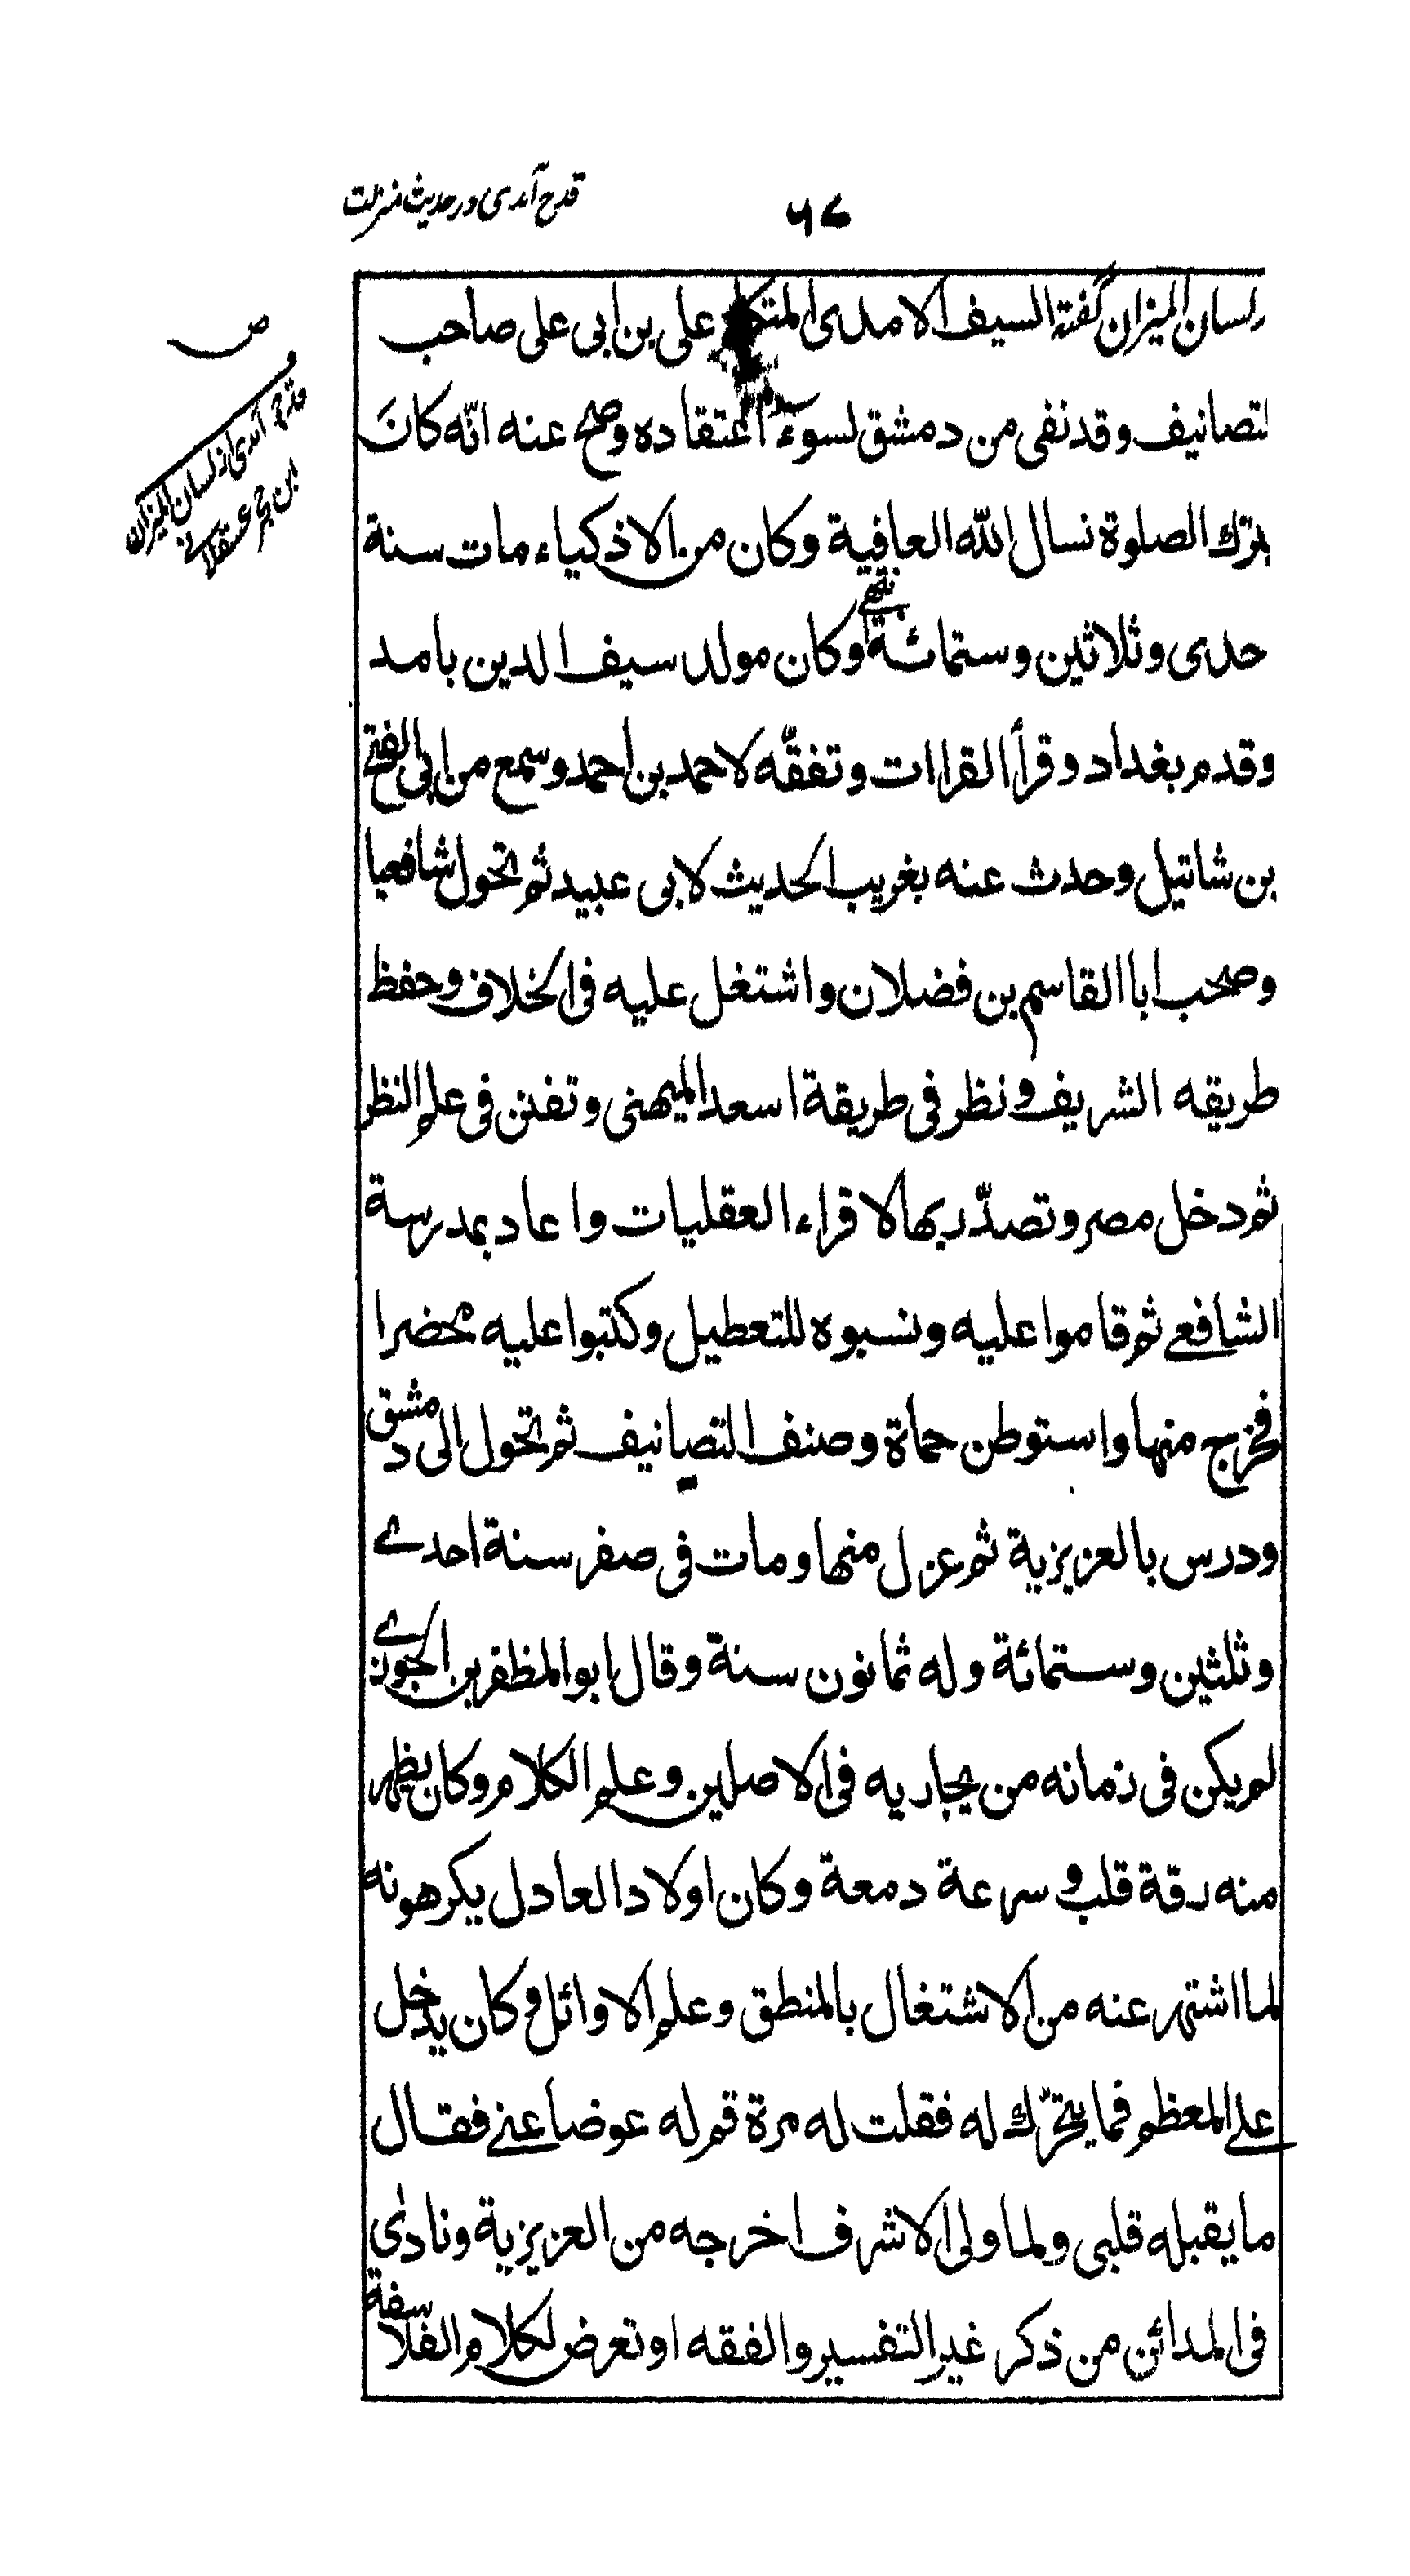 ۶۷
قدح آمدی در حدیث منزلت
ص
قدح آمدی از لسان المیزان
ابن حجر عسقلانی
لسان المیزان گفته السیف الامدی المتکلم علی بن ابی علی صاحب
لتصانیف وقد نفی من دمشق لسوء اعتقاده وصح عنه انّه کانَ
یترك الصلوة نسال الله العافیة وکان من الاذکیاء مات سنة
حدی وثلاثین وستمائة انتهی وکان مولد سیف الدین بامد
وقدم بغداد وقرأ القراات وتفقّه لاحمد بن احمد وسمع من ابی الفتح
بن شاتیل وحدث عنه بغریب الحدیث لابی عبید ثم تحول شافعیا
وصحب ابا القاسم بن فضلان واشتغل علیه فی الخلاف وحفظ
طریقه الشریف ونظر فی طریقة اسعد المیهنی وتفنن فی علم النظر
ثم دخل مصر وتصدّر بها لاقراء العقلیات واعاد بمدرسة
الشافعے ثم قاموا علیه ونسبوه للتعطیل وکتبوا علیه محضرا
فخرج منها واستوطن حماة وصنف التصانیف ثم تحول الی دمشق
ودرس بالعزیزیة ثم عزل منها ومات فی صفر سنة احدے
وثلثین وستمائة وله ثمانون سنة وقال ابو المظفر بن الجوزے
لم یکن فی زمانه من یجاریه فی الاصلین وعلم الکلام وکان یظهر
منه رقة قلب وسرعة دمعة وکان اولاد العادل یکرهونه
لما اشتهر عنه من الاشتغال بالمنطق وعلم الاوائل وکان یدخل
علے المعظم فما یتحرّك له فقلت له مرة قم له عوضا عنے فقال
ما یقبله قلبی ولما ولی الاشرف اخرجه من العزیزیة ونادٰی
فی المدائن من ذکر غیر التفسیر والفقه او تعرض لکلام الفلاسفة